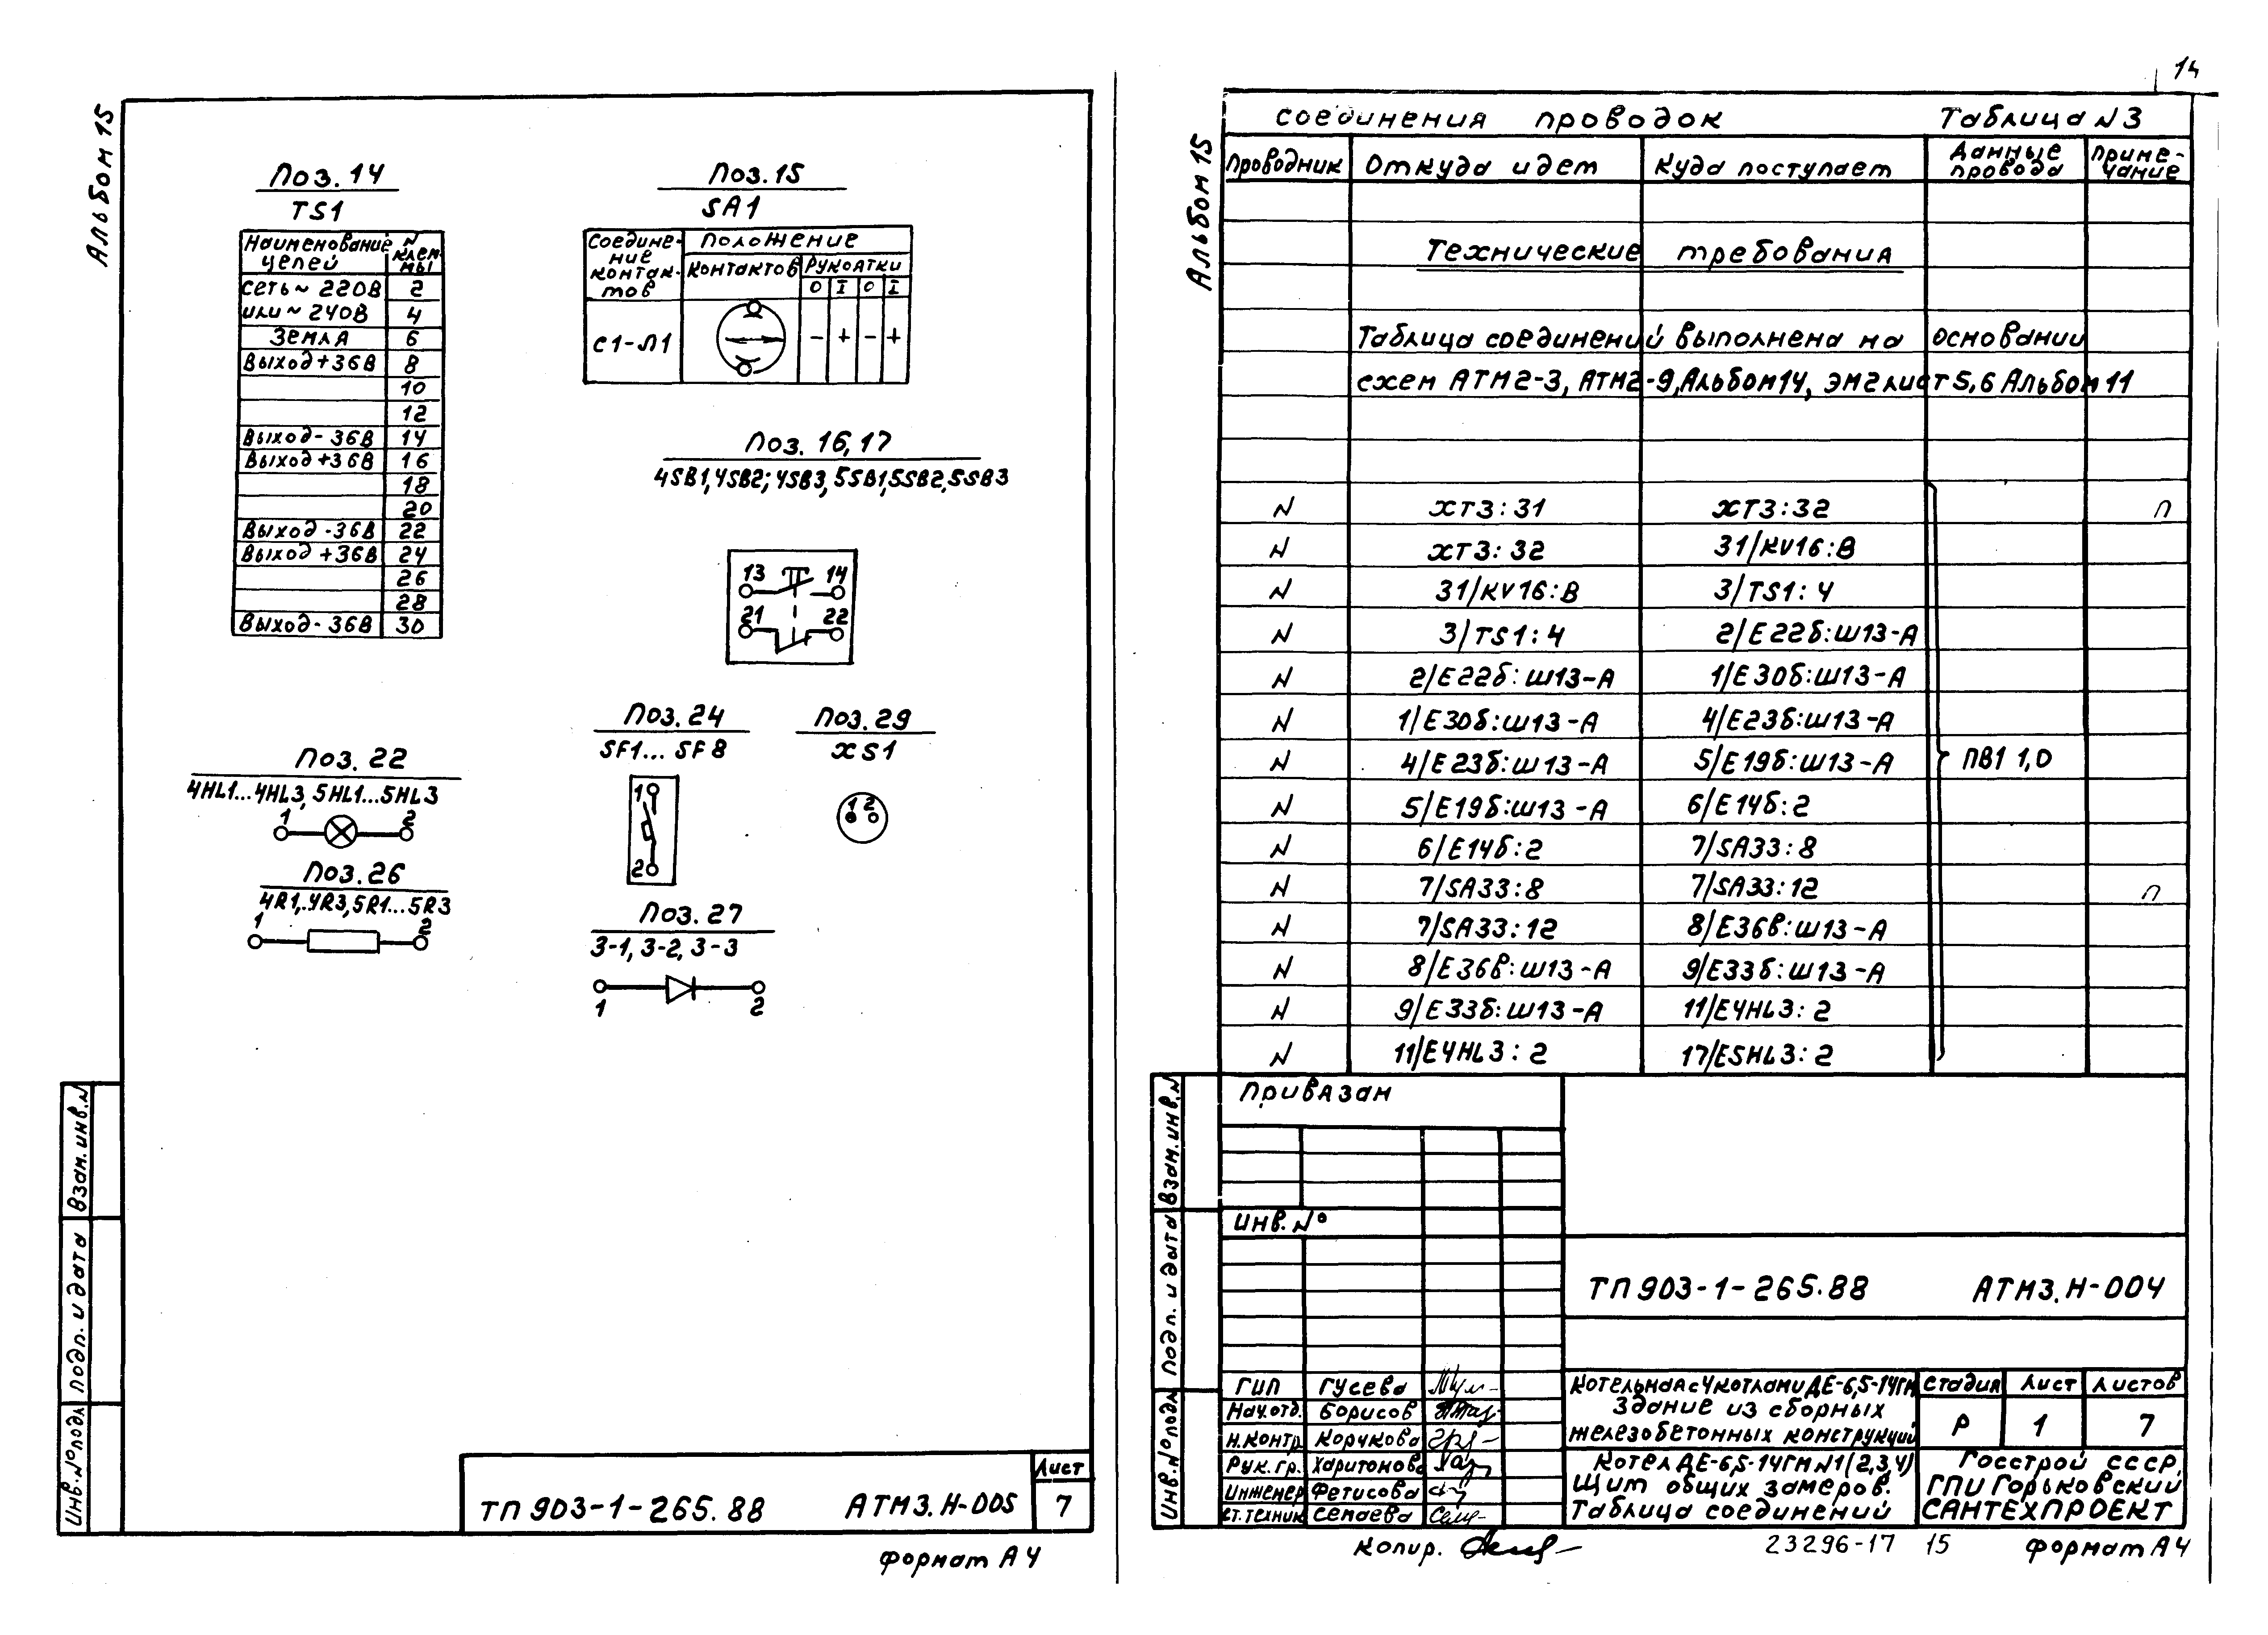 Альбом 15
Поз. 14
TS1
Наименование цепей N клеммы
сеть ~ 220В 2
или ~ 240В 4
Земля 6
Выход +36В 8
10
12
Выход - 36В 14
Выход +36В 16
18
20
Выход - 36В 22
Выход +36В 24
26
28
Выход - 36В 30
Поз. 15
SA1
Соединение контактов Положение
контактов рукоятки
0 I 0 I
С1-Л1 - + - +
Поз. 16,17
4SB1,4SB2; 4SB3, 5SB1,5SB2,5SB3
13 14
21 22
Поз. 22
4HL1...4HL3, 5HL1...5HL3
1 2
Поз. 26
4R1,..4R3,5R1...5R3
1 2
Поз. 24
SF1... SF8
1
2
Поз. 29
XS1
1 2
Поз. 27
3-1, 3-2, 3-3
1 2
Взам. инв. N
Подп. и дата
Инв. N° подл
ТП 903-1-265.88 АТМ3.Н-005
Лист
7
формат А4
14
Альбом 15
соединения проводок Таблица N3
Проводник Откуда идет Куда поступает Данные провода Примечание
Технические требования
Таблица соединений выполнена на основании
схем АТМ2-3, АТМ2-9, Альбом 14, ЭМ2 лист 5,6 Альбом 11
N XT3:31 XT3:32 п
N XT3:32 31/KV16:В
N 31/KV16:В 3/TS1:4
N 3/TS1:4 2/E22б:Ш13-А
N 2/E22б:Ш13-А 1/E30б:Ш13-А
N 1/E30б:Ш13-А 4/E23б:Ш13-А
N 4/E23б:Ш13-А 5/E19б:Ш13-А ПВ1 1,0
N 5/E19б:Ш13-А 6/E14б:2
N 6/E14б:2 7/SA33:8
N 7/SA33:8 7/SA33:12 п
N 7/SA33:12 8/E36в:Ш13-А
N 8/E36в:Ш13-А 9/E33б:Ш13-А
N 9/E33б:Ш13-А 11/E4HL3:2
N 11/E4HL3:2 17/E5HL3:2
Взам. инв. N
Подп. и дата
Инв. N° подл
Привязан
Инв. N°
ТП 903-1-265.88 АТМ3.Н-004
ГИП Гусева
Нач. отд. Борисов
Н. контр Корчкова
Рук. гр. Харитонова
Инженер Фетисова
Ст. техник Семаева
Котельная с 4 котлами ДЕ-6,5-14ГМ
Здание из сборных
железобетонных конструкций
Стадия Лист Листов
Р 1 7
Котел ДЕ-6,5-14ГМ N1(2,3,4)
Щит общих замеров.
Таблица соединений
Госстрой СССР,
ГПИ Горьковский
САНТЕХПРОЕКТ
Копир.
23296-17 15
формат А4